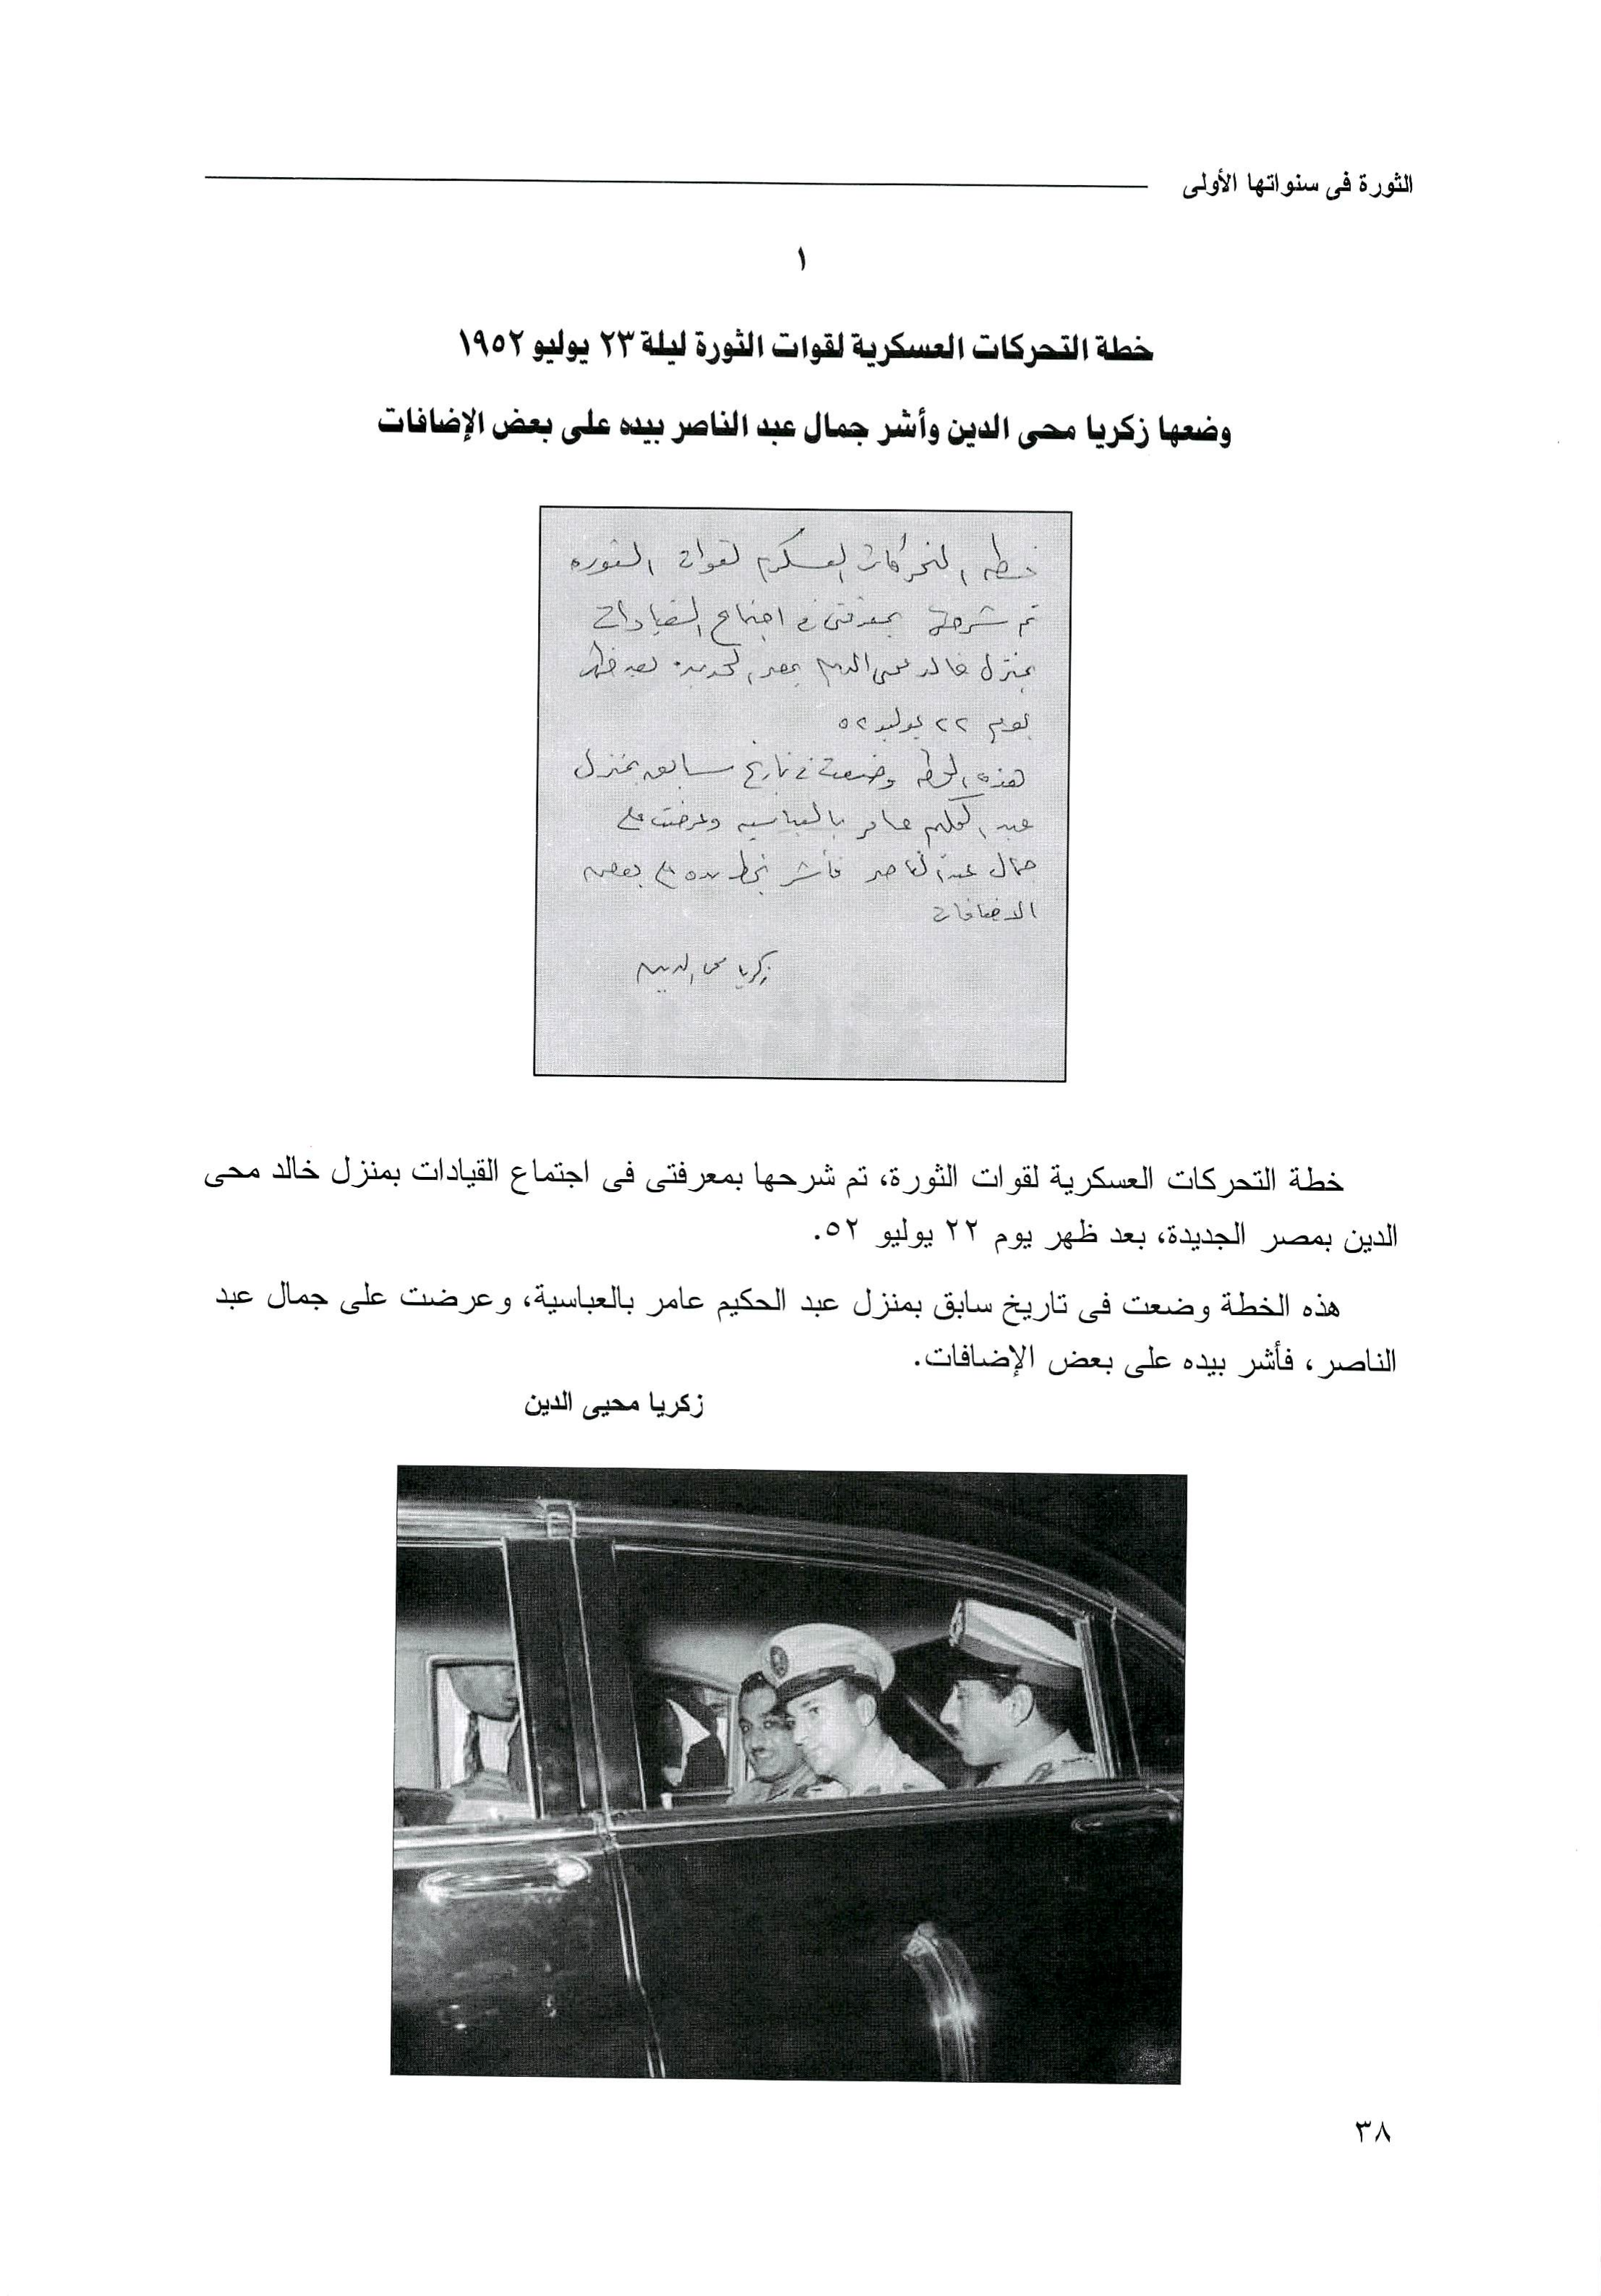 الثورة فى سنواتها الأولى
١
خطة التحركات العسكرية لقوات الثورة ليلة ٢٣ يوليو ١٩٥٢
وضعها زكريا محى الدين وأشر جمال عبد الناصر بيده على بعض الإضافات
خطه التحركات العسكريه لقوات الثوره
تم شرحها بمعرفتى فى اجتماع القيادات
بمنزل خالد محى الدين بمصر الجديده بعد ظهر
يوم ٢٢ يوليو ٥٢
هذه الخطه وضعت فى تاريخ سابق بمنزل
عبد الحكيم عامر بالعباسيه وعرضت على
جمال عبد الناصر فأشر بخط يده على بعض
الاضافات
زكريا محى الدين
خطة التحركات العسكرية لقوات الثورة، تم شرحها بمعرفتى فى اجتماع القيادات بمنزل خالد محى
الدين بمصر الجديدة، بعد ظهر يوم ٢٢ يوليو ٥٢.
هذه الخطة وضعت فى تاريخ سابق بمنزل عبد الحكيم عامر بالعباسية، وعرضت على جمال عبد
الناصر، فأشر بيده على بعض الإضافات.
زكريا محيى الدين
٣٨